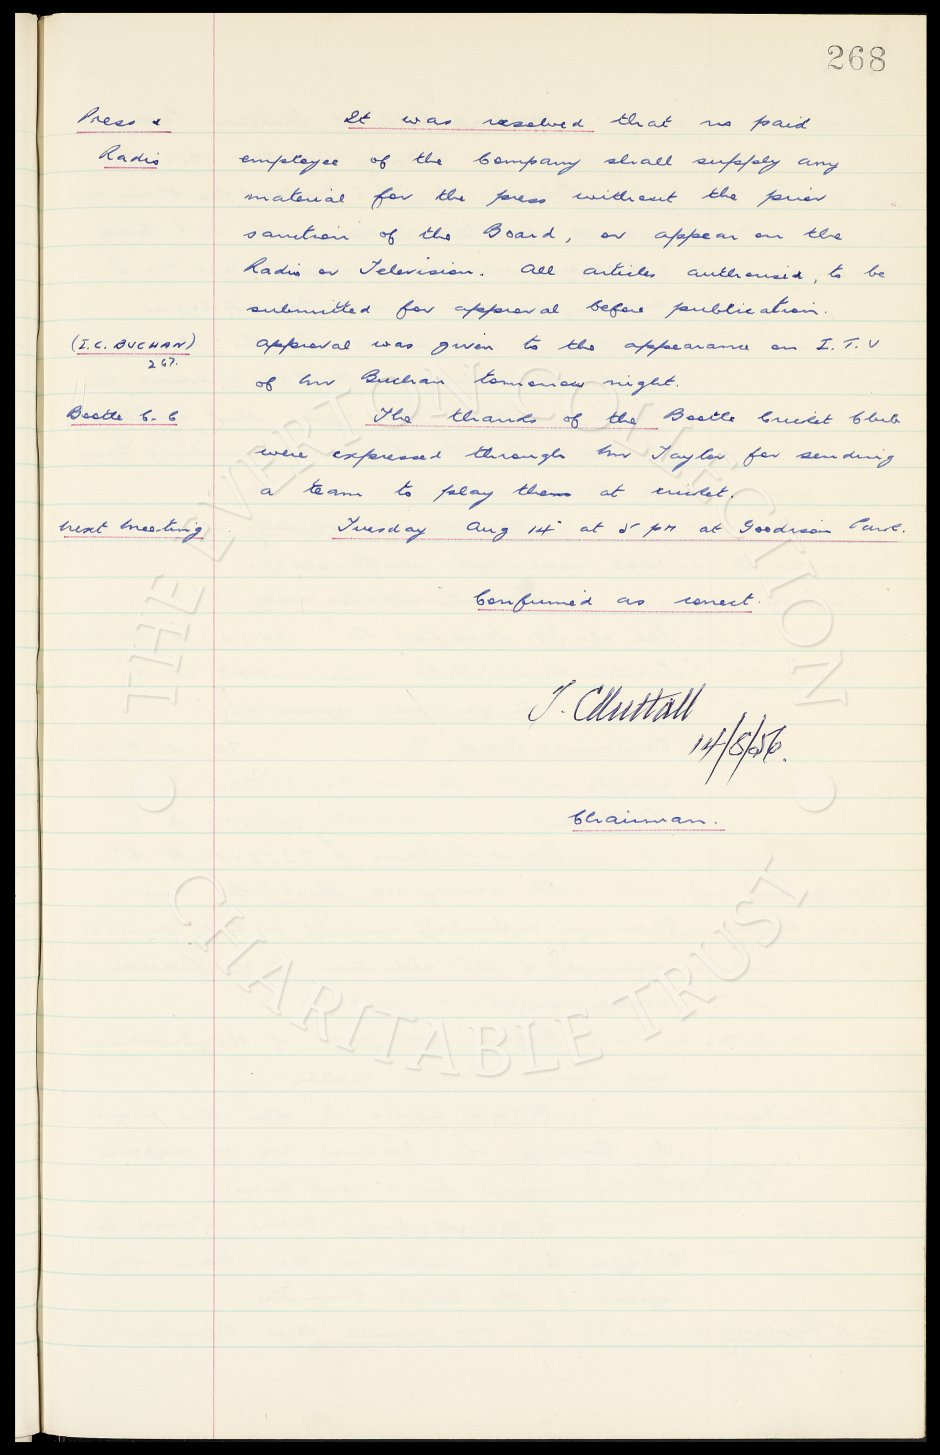 268
Press & It was resolved that no paid
Radio employee of the Company shall supply any
material for the press without the prior
sanction of the Board, or appear on the
Radio or Television. All articles authorised, to be
submitted for approval before publication.
(I.C. BUCHAN) approval was given to the appearance on I.T.V
267.
of Mr Buchan tomorrow night.
Bootle C.C The thanks of the Bootle Cricket Club
were expressed through Mr Taylor for sending
a team to play them at cricket.
Next Meeting Tuesday Aug 14 at 5 pm at Goodison Park.
Confirmed as correct.
T. C Nuttall
14/8/56.
Chairman.
THE EVERTON COLLECTION
CHARITABLE TRUST